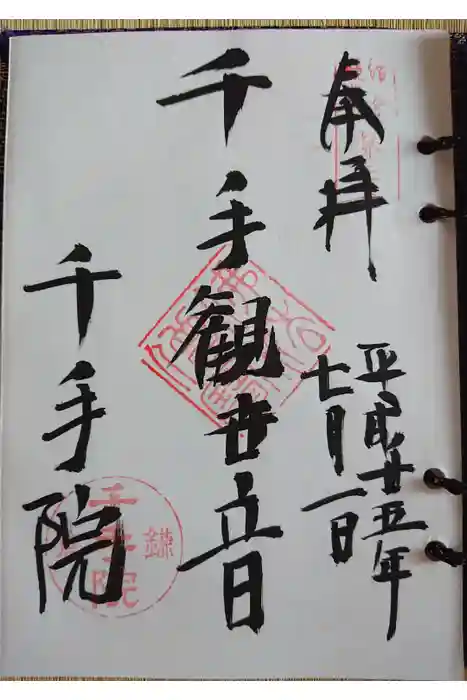 奉拝
平成廿五年
七月一日
千手観世音
千手院